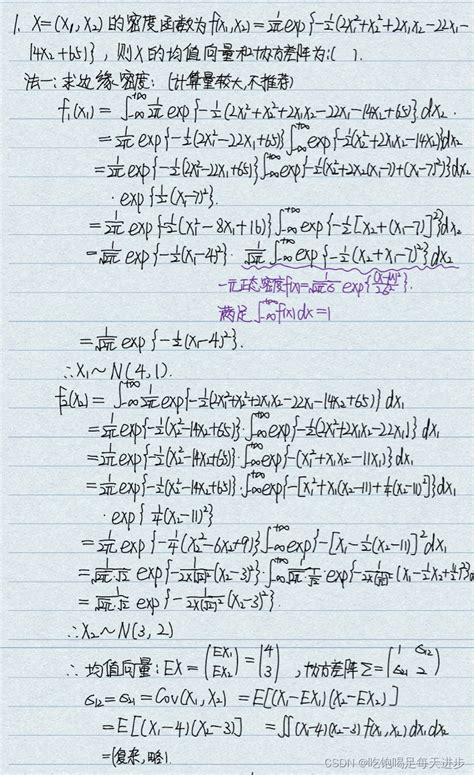 1. X=(X₁,X₂) 的密度函数为 f(x₁,x₂)=1/2π exp{-½(2x₁²+x₂²+2x₁x₂-22x₁-
14x₂+65)}, 则X的均值向量和协方差阵为:( ).
法一:求边缘密度:(计算量较大,不推荐)
f₁(x₁) = ∫-∞^+∞ 1/2π exp{-½(2x₁²+x₂²+2x₁x₂-22x₁-14x₂+65)}dx₂.
= 1/2π exp{-½(2x₁²-22x₁+65)}∫-∞^+∞ exp{-½(x₂²+2x₁x₂-14x₂)}dx₂
= 1/2π exp{-½(2x₁²-22x₁+65)}∫-∞^+∞ exp{-½(x₂²+2x₂(x₁-7)+(x₁-7)²)}dx₂
· exp{½(x₁-7)²}
= 1/2π exp{-½(x₁²-8x₁+16)}∫-∞^+∞ exp{-½[x₂+(x₁-7)]²}dx₂
= 1/√2π exp{-½(x₁-4)²}· 1/√2π ∫-∞^+∞ exp{-½(x₂+x₁-7)²}dx₂
一元正态密度f(x)=1/√2πσ exp{(x-μ)²/2σ²}.
满足∫-∞^+∞ f(x)dx=1
= 1/√2π exp{-½(x₁-4)²}.
∴X₁~N(4,1).
f₂(x₂) = ∫-∞^+∞ 1/2π exp{-½(2x₁²+x₂²+2x₁x₂-22x₁-14x₂+65)}dx₁
= 1/2π exp{-½(x₂²-14x₂+65)}·∫-∞^+∞ exp{-½(2x₁²+2x₁x₂-22x₁)}dx₁
= 1/2π exp{-½(x₂²-14x₂+65)}·∫-∞^+∞ exp{-(x₁²+x₁x₂-11x₁)}dx₁
= 1/2π exp{-½(x₂²-14x₂+65)}·∫-∞^+∞ exp{-[x₁²+x₁(x₂-11)+¼(x₂-11)²]}dx₁
· exp{¼(x₂-11)²}
= 1/2π exp{-¼(x₂²-6x₂+9)}∫-∞^+∞ exp{-[x₁-½(x₂-11)]²dx₁
= 1/√2π·√2 exp{-1/2×(√2)²(x₂-3)²}·∫-∞^+∞
= 1/√2π·√2 exp{-1/2×(√2)²(x₂-3)²}.
∴X₂~N(3,2)
∴ 均值向量:EX=(EX₁ EX₂)=(4 3), 协方差阵Σ=(1 σ₁₂ σ₂₁ 2)
σ₁₂=σ₂₁=Cov(X₁,X₂) = E[(X₁-EX₁)(X₂-EX₂)]
=E[(X₁-4)(X₂-3)] =∬(x₁-4)(x₂-3)f(x₁,x₂)dx₁dx₂
=(复杂,略).
CSDN @吃饱喝足每天进步